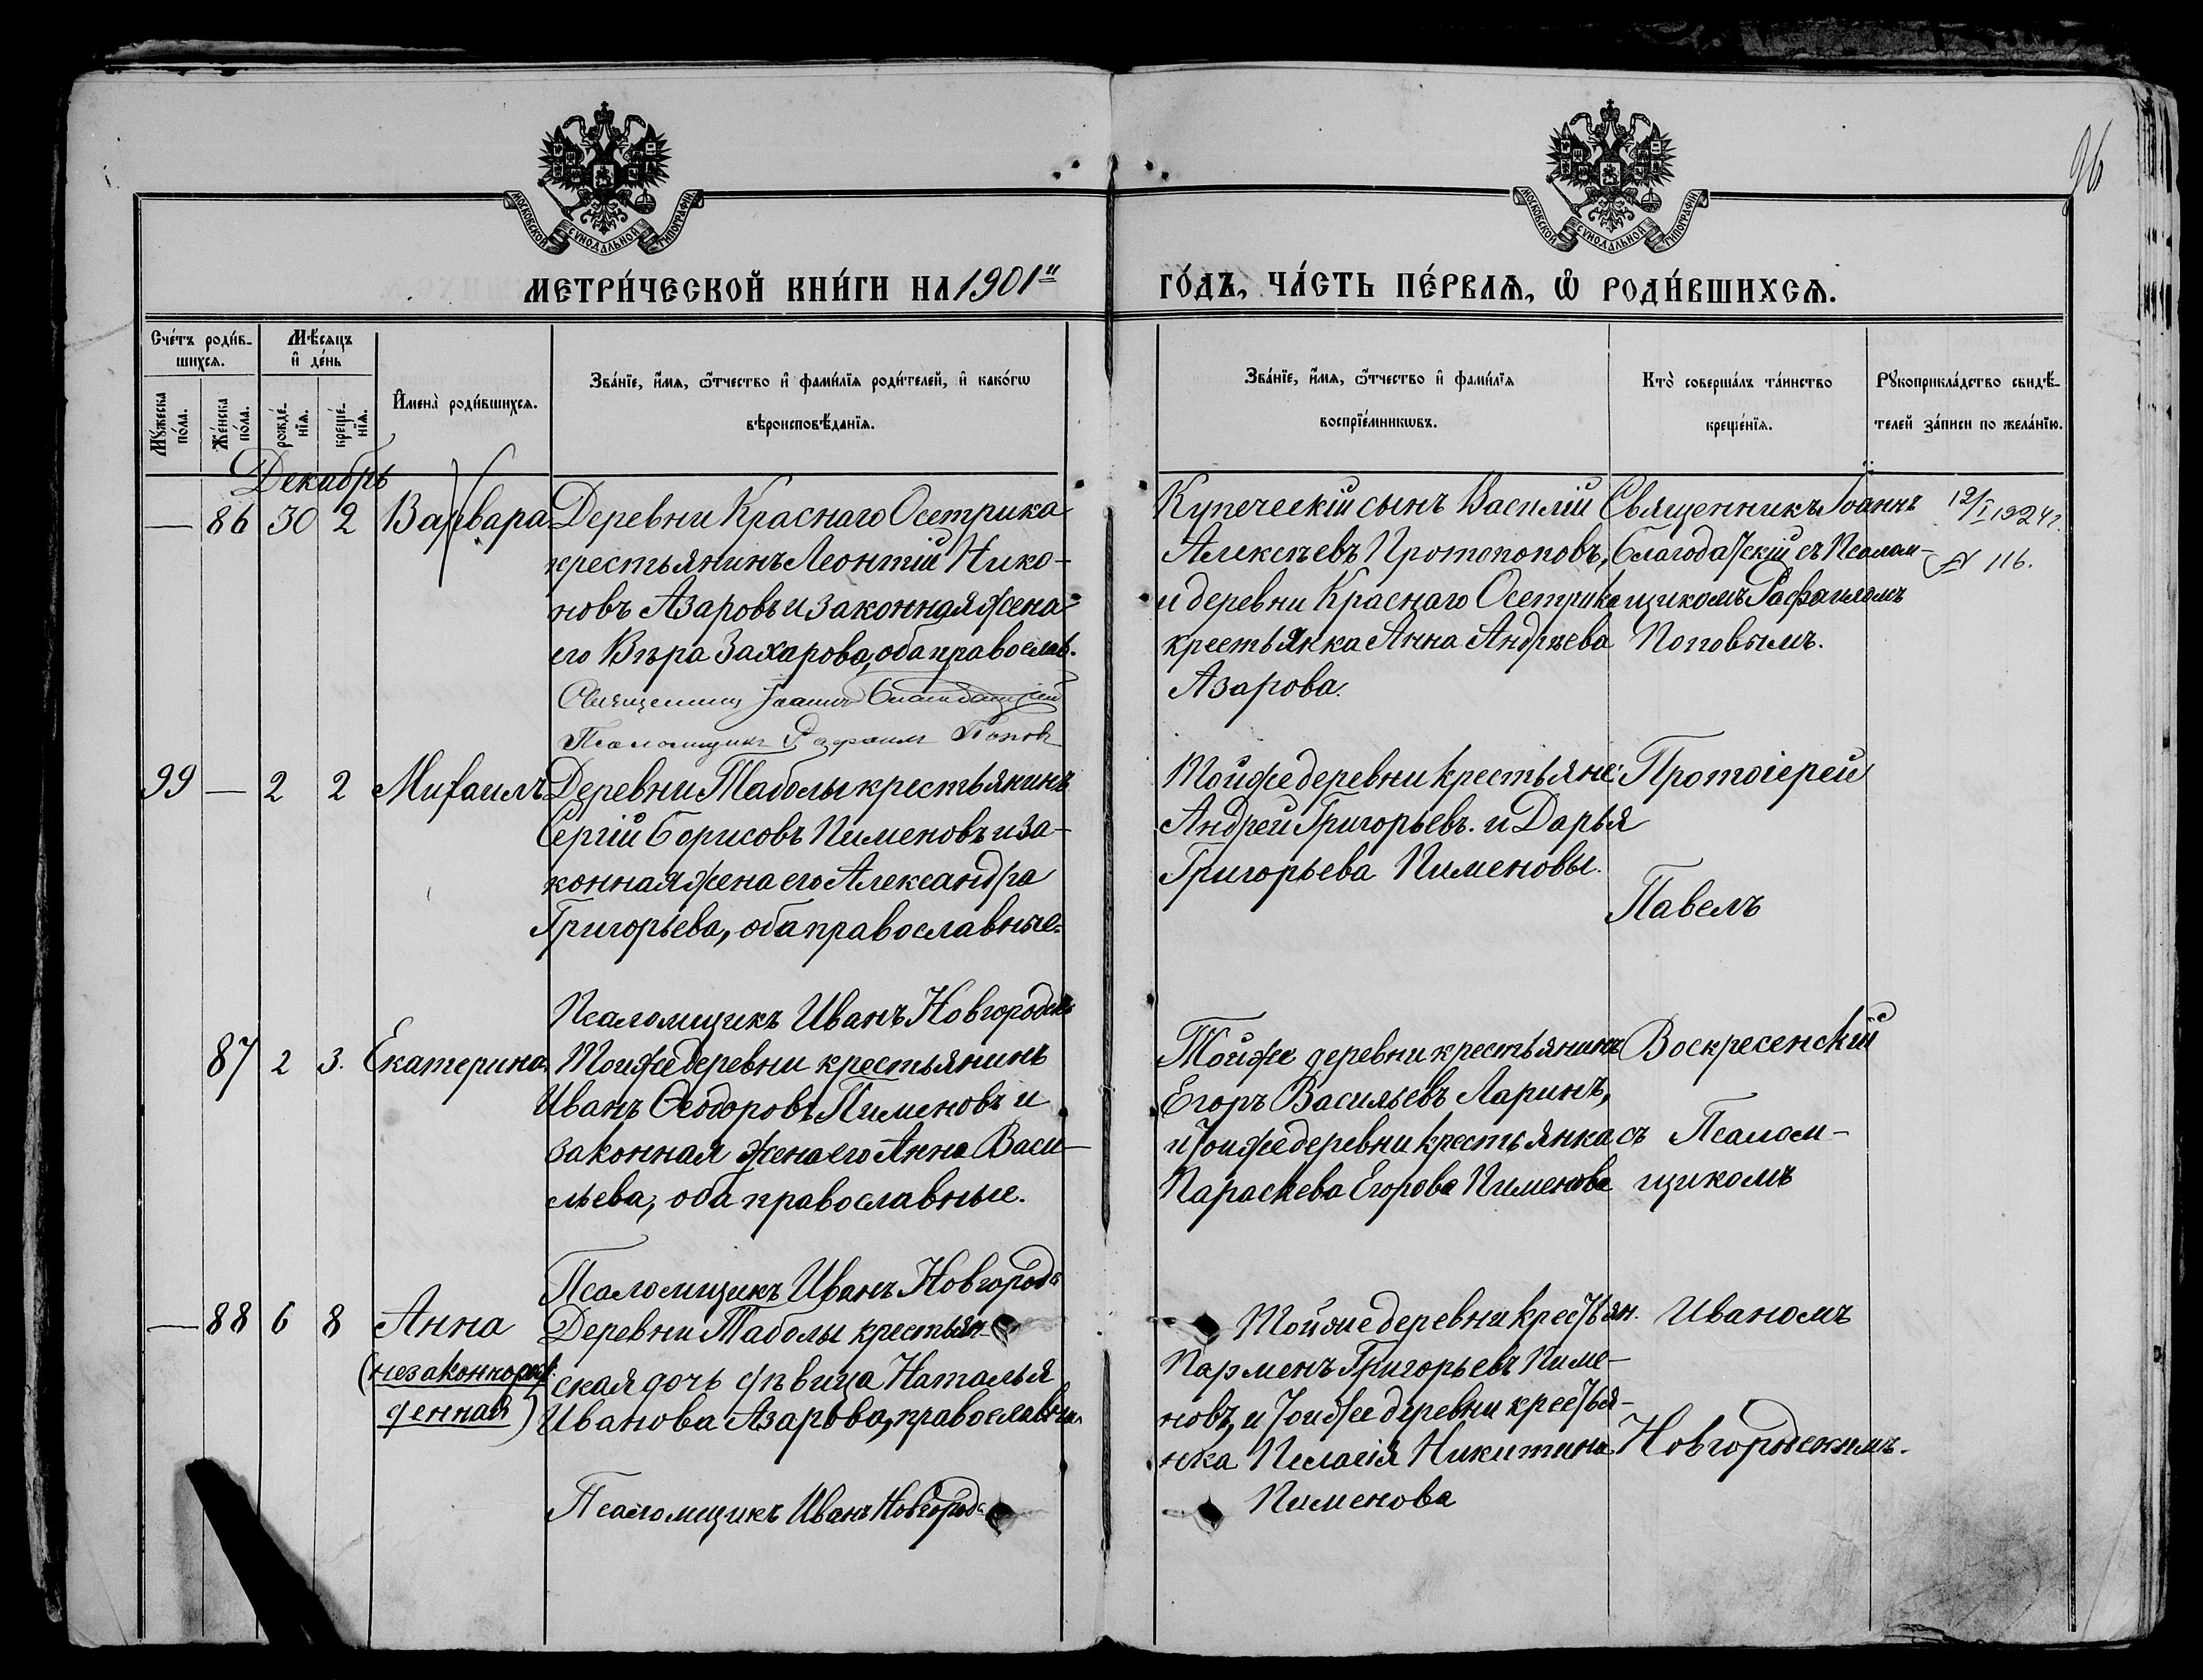 96
МОСКОВСКОЙ СѴНОДАЛЬНОЙ ТИПОГРАФІИ
МОСКОВСКОЙ СѴНОДАЛЬНОЙ ТИПОГРАФІИ
МЕТРИ́ЧЕСКОЙ КНИ́ГИ НА 1901й ГО́ДЪ, ЧА́СТЬ ПЕ́РВАѦ, Ѡ҆ РОДИ́ВШИХСѦ.
Сче́тъ роди́в-
шихсѧ.
Му́жеска
по́ла.
Же́нска
по́ла.
Мѣ́сяцъ
и҆ де́нь
рожде́-
нїѧ.
креще́-
нїѧ.
И҆мена̀ роди́вшихсѧ.
Зва́нїе, и҆́мѧ, ѻ҆́тчество и҆ фами́лїѧ роди́телей, и҆ како́гѡ
вѣроисповѣ́данїѧ.
Зва́нїе, и҆́мѧ, ѻ҆́тчество и҆ фами́лїѧ
воспрїе́мникѡвъ.
Кто̀ соверша́лъ та́инство
креще́нїѧ.
Рꙋкоприкла́дство свидѣ́-
телей за́писи по жела́нїю.
Декабрь
— 86 30 2 Варвара
Деревни Краснаго Осетрика
крестьянинъ Леонтій Нико-
новъ Азаровъ и законная жена
его Вѣра Захарова, оба православ.
Священникъ Іоаннъ Благодатскій
Псаломщикъ Рафаилъ Поповъ
Купеческій сынъ Василій
Алексѣевъ Протопоповъ,
и деревни Краснаго Осетрика
крестьянка Анна Андрѣева
Азарова.
Священникъ Іоаннъ
Благодатскій съ Псалом-
щикомъ Рафаиломъ
Поповымъ.
12/I 1924 г.
№ 116.
99 — 2 2 Михаилъ
Деревни Таболы крестьянинъ
Сергій Борисовъ Пименовъ и за-
конная жена его Александра
Григорьева, оба православные.
Псаломщикъ Иванъ Новгородскій
Тойже деревни крестьяне:
Андрей Григорьевъ. и Дарья
Григорьева Пименовы.
Протоіерей
Павелъ
87 2 3. Екатерина
Тойже деревни крестьянинъ
Иванъ Ѳеодоровъ Пименовъ и
законная жена его Анна Васи-
льева, оба православные.
Псаломщикъ Иванъ Новгородс
Тойже деревни крестьянинъ
Егоръ Васильевъ Ларинъ,
и тойже деревни крестьянка
Параскева Егорова Пименова
Воскресенскій
съ Псалом-
щикомъ
— 88 6 8 Анна
(незаконнорож-
денная)
Деревни Таболы крестьян-
ская дочь дѣвица Наталья
Иванова Азарова, православная
Псаломщикъ Иванъ Новгородс
Тойже деревни крестьян.
Парменъ Григорьевъ Пиме-
новъ, и тойже деревни крестья-
нка Пелагія Никитина
Пименова
Иваномъ
Новгородскимъ.